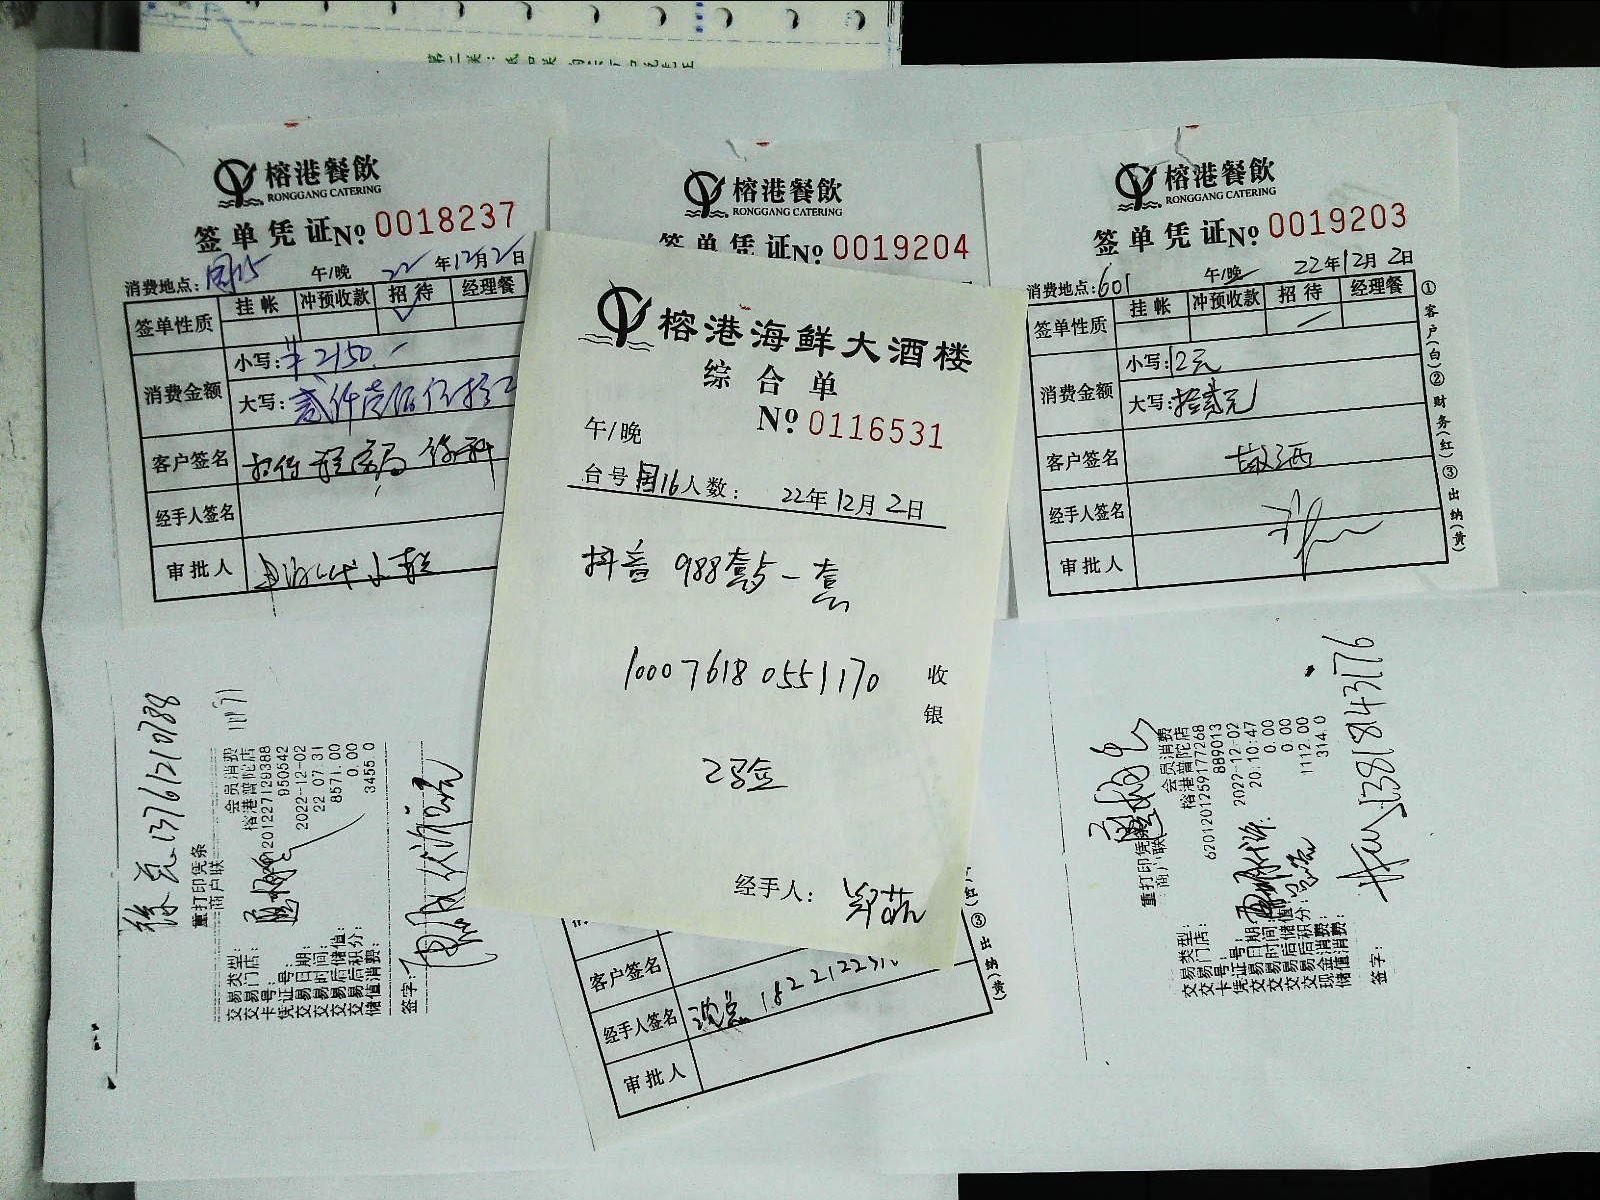 榕港餐飲
RONGGANG CATERING
签单凭证 No 0018237
消费地点: 国15 午/晚 22年12月2日
签单性质 挂帐 冲预收款 招待 经理餐
消费金额 小写: ¥2150.-
大写: 贰仟壹佰伍拾
客户签名
经手人签名
审批人
榕港餐飲
RONGGANG CATERING
签单凭证 No 0019204
榕港餐飲
RONGGANG CATERING
签单凭证 No 0019203
消费地点: 601 午/晚 22年12月2日
签单性质 挂帐 冲预收款 招待 经理餐
消费金额 小写: 12元
大写: 拾贰元
客户签名
经手人签名
审批人
①客户(白)②财务(红)③出纳(黄)
榕港海鲜大酒楼
综合单
No 0116531
午/晚
台号 国16 人数: 22年12月2日
抖音 988套 一套
1000 7618 0551170
收银
经手人: 郑
客户签名
经手人签名
审批人
③出纳(黄)
徐 13761210788
重打印凭条
商户联
交易类型: 会员消费
交易门店: 榕港普陀店
卡号:
凭证号: 950542
交易日期: 2022-12-02
交易时间: 22 07 31
交易后储值: 8571.00
交易后积分: 0.00
储值消费: 3455 0
签字:
重打印凭
商户联
交易类型: 会员消费
交易门店: 榕港普陀店
卡号: 6201201259177268
凭证号: 889013
交易日期: 2022-12-02
交易时间: 20.10:47
交易后储值: 0.00
交易后积分: 1112.00
现金消费: 314 0
储值消费:
签字:
13818143176